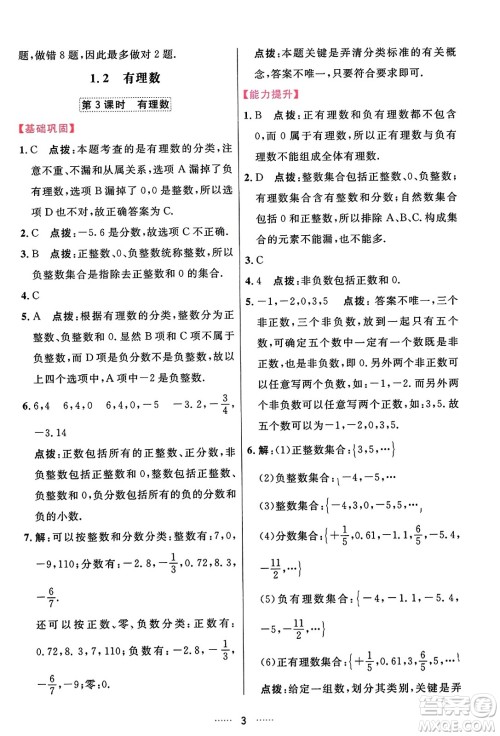 题,做错8题,因此最多做对2题.
1.2 有理数
第3课时 有理数
【基础巩固】
1. C 点拨:本题考查的是有理数的分类,注
意不重、不漏和从属关系,选项A漏掉了负
有理数,选项B漏掉了0,0是整数,所以选
项D不成立,故正确答案为C.
2. C 点拨:-5.6是分数.
3. B 点拨:正整数、0、负整数统称整数,所以
负整数集合是指整数中除去正整数和0的
集合,也就是除去自然数和0的集合.
4. C
5. A 点拨:根据有理数的分类,整数可分为
正整数、0、负整数,显然B项和C项不是正
整数,而D项为负分数,也不是正整数,所以
上四个选项中,A项为正整数.
6. 6,4 6,4,0 6,4,0,-5 -2,-3/4,
-3.14
点拨:正数包括所有的正整数、正分数,非负
数包括正数和0,整数包括正整数、负整数
和0,负分数包括所有的负分数、负百分数及
负的小数.
7. 解:可以按整数和分数分类:整数有:7,0,
-9,110;分数有:-2.8,-1/3,0.72,8.3,
-6/7.
还可以按正数、零、负数分类:正数有:7,
0.72,8.3,110;负数有:-2.8,-1/3,-9,
-6/7;零:0.
点拨:本题关键是弄清分类标准的有关概
念,答案不唯一,可以有多种分类.
【能力提升】
1. B 点拨:正有理数和负有理数都不包含0,
0也是有理数,所以只有正有理数与负有理
数不能组成全体有理数.
2. D 点拨:整数集合包括正整数、负整数和0,
有理数集合含有整数和分数.正整数集合不
包括负整数和0,所以排除A、B、C.构成集
合的元素不能遗漏,所以选D.
4. 4 点拨:非负数包括正数和0.
5. -1,-2,0,3,5 点拨:答案不唯一,三个
非正数,三个非负数加起来一共有六个数,
而题中五个数中一定有一个数既是非正数,
也是非负数,即为0.另外两个非正数可以
任意写两个负数,如:-1,-2,还有两个非负
数可以任意写两个正数,如:3,5,故这五个
数可以为-1,-2,0,3,5.
6. 解:(1)正整数集合:{3,5,…}
(2)负整数集合:{-4,-5,…}
(3)整数集合:{-4,0,3,-5,5,…}
(4)分数集合:{+1/5,0.36,-61%,
-11/2,…}
(5)负有理数集合:{-4,-61%,-5,
-11/2,…}
(6)正有理数集合:{+1/5,0.36,3,5,…}
点拨:给定一组数,划分其类别,关键要弄
3